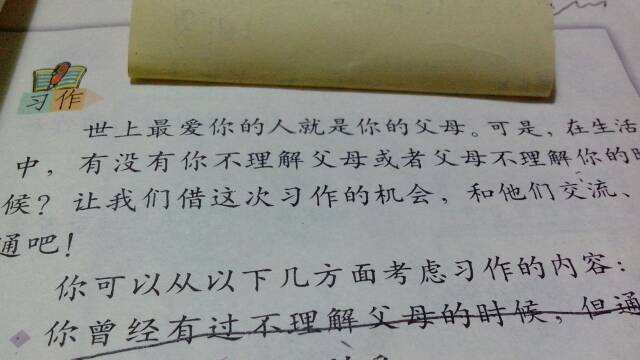 习作
世上最爱你的人就是你的父母。可是，在生活
中，有没有你不理解父母或者父母不理解你的时
候？让我们借这次习作的机会，和他们交流、
通吧！
你可以从以下几方面考虑习作的内容：
你曾经有过不理解父母的时候，但通